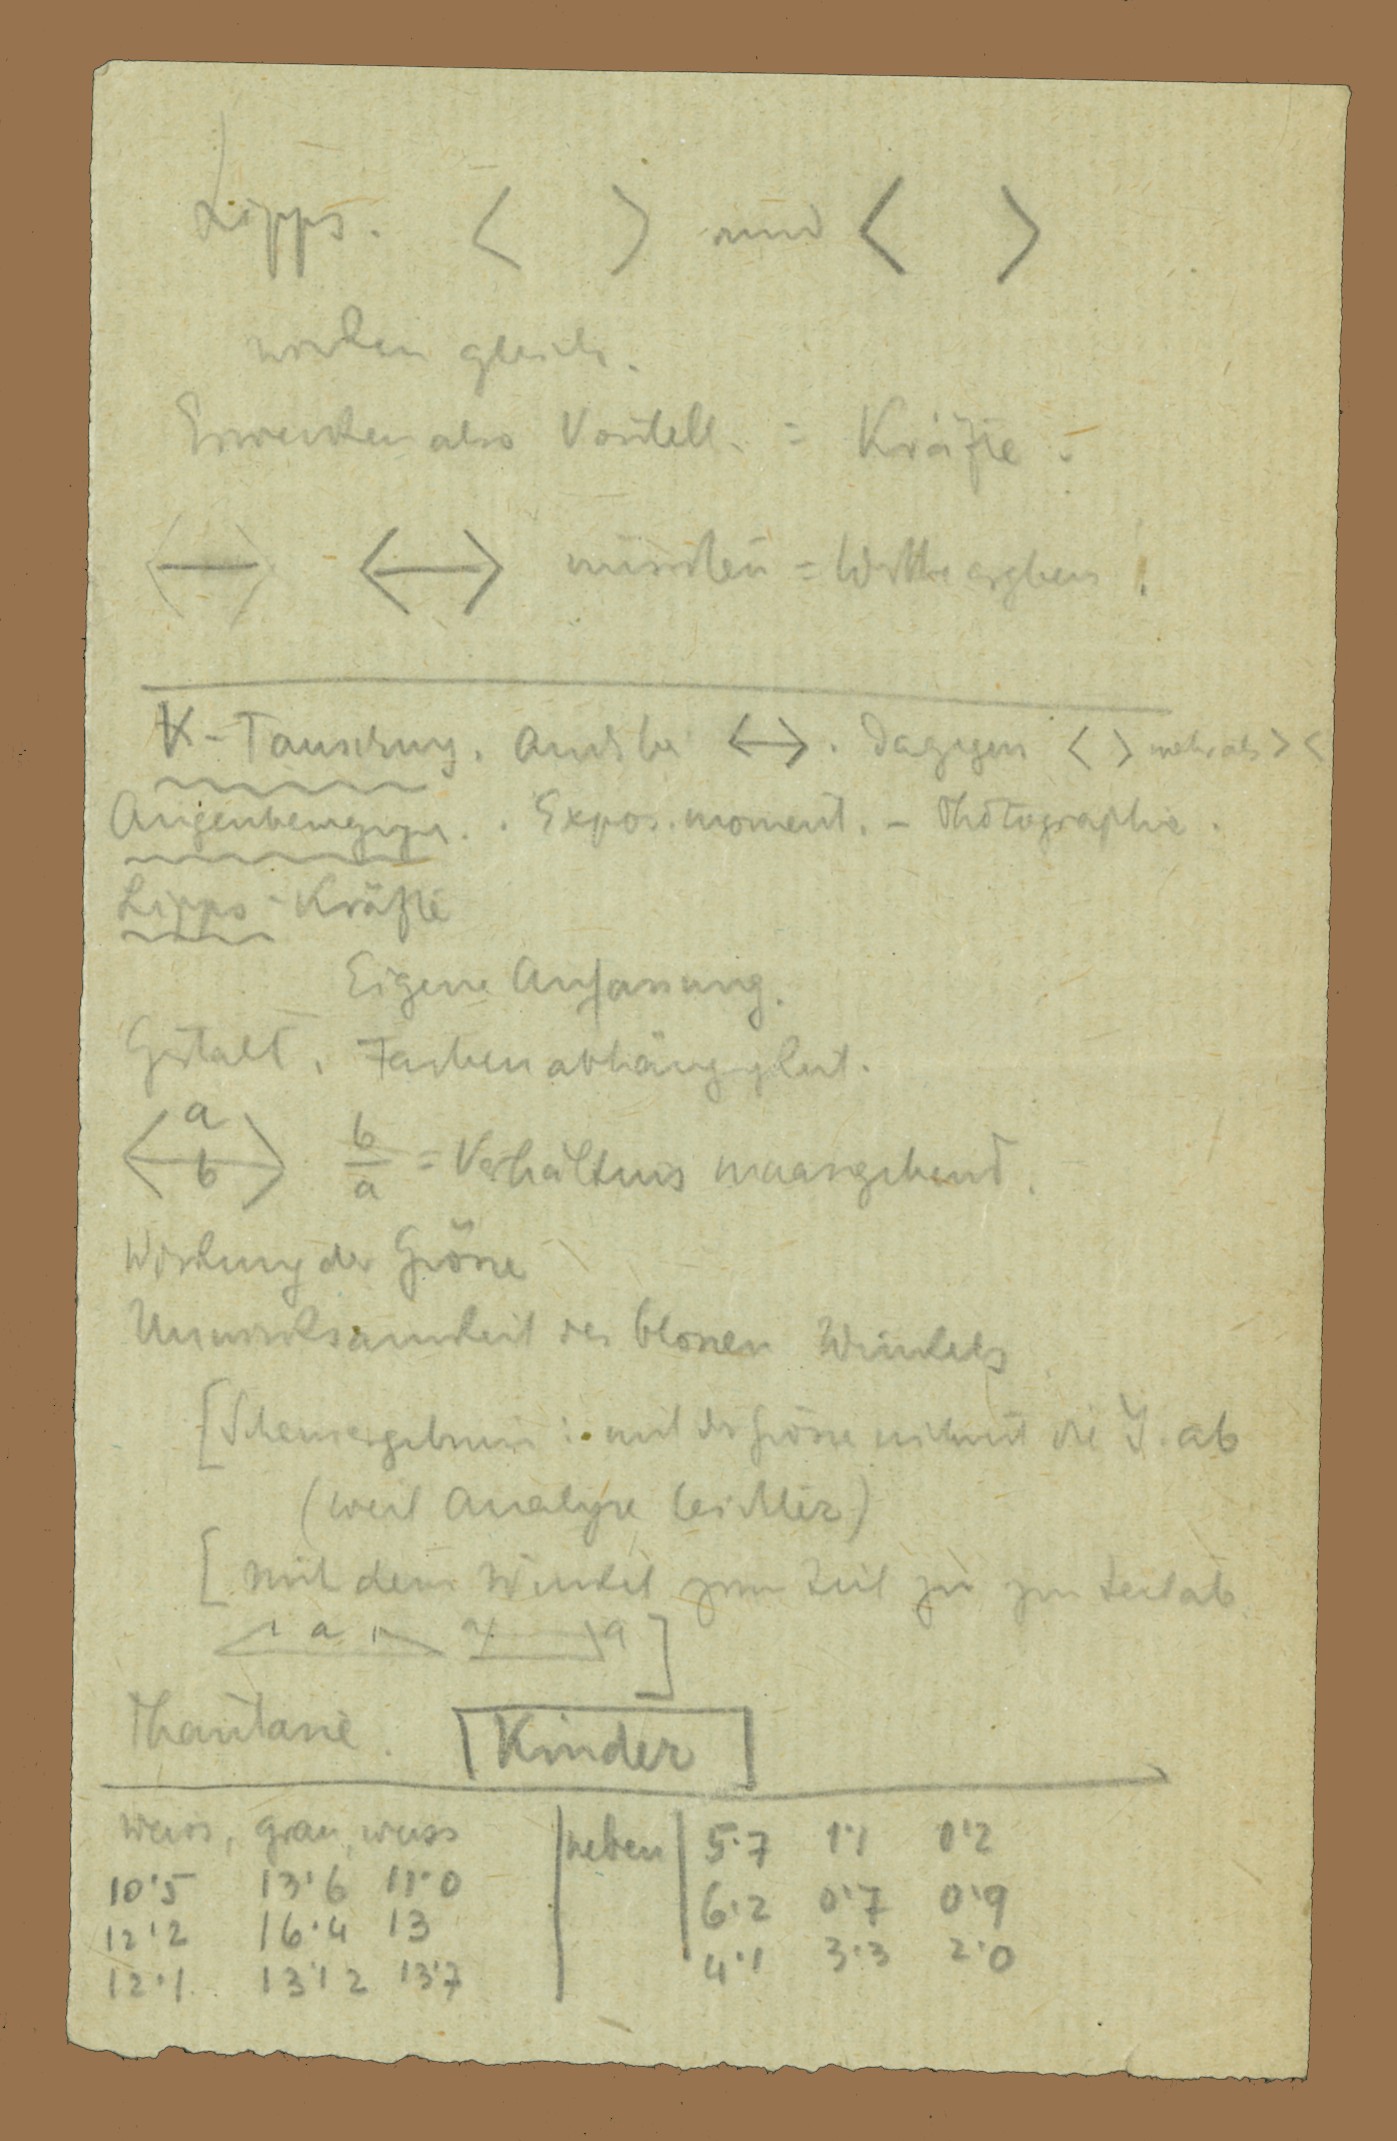 Lipps. < > und < >
wirken gleich.
Erwecken also Vorstell. = Kräfte.
<—> <—> müssten = Werthe ergeben!
K-Täuschung. Auch bei <—>. Dagegen < > mehr als > <
Augenbewegungen. Expos. moment. – Photographie.
Lipps - Kräfte
Eigene Auffassung.
Gestalt. Farbenabhängigkeit.
a b b/a = Verhältnis maassgebend.
Wirkung der Grösse
Unwirksamkeit des blossen Winkels
[Scheinergebnis: mit der Grösse nimmt die T. ab
(weil Analyse leichter)
[mit dem Winkel zum Teil zu zum Teil ab
a a a]
Phantasie. Kinder
weiss, grau, weiss | neben | 5·7 1·1 0·2
10·5 13·6 11·0 6·2 0·7 0·9
12·2 16·4 13 4·1 3·3 2·0
12·1 13·12 13·7